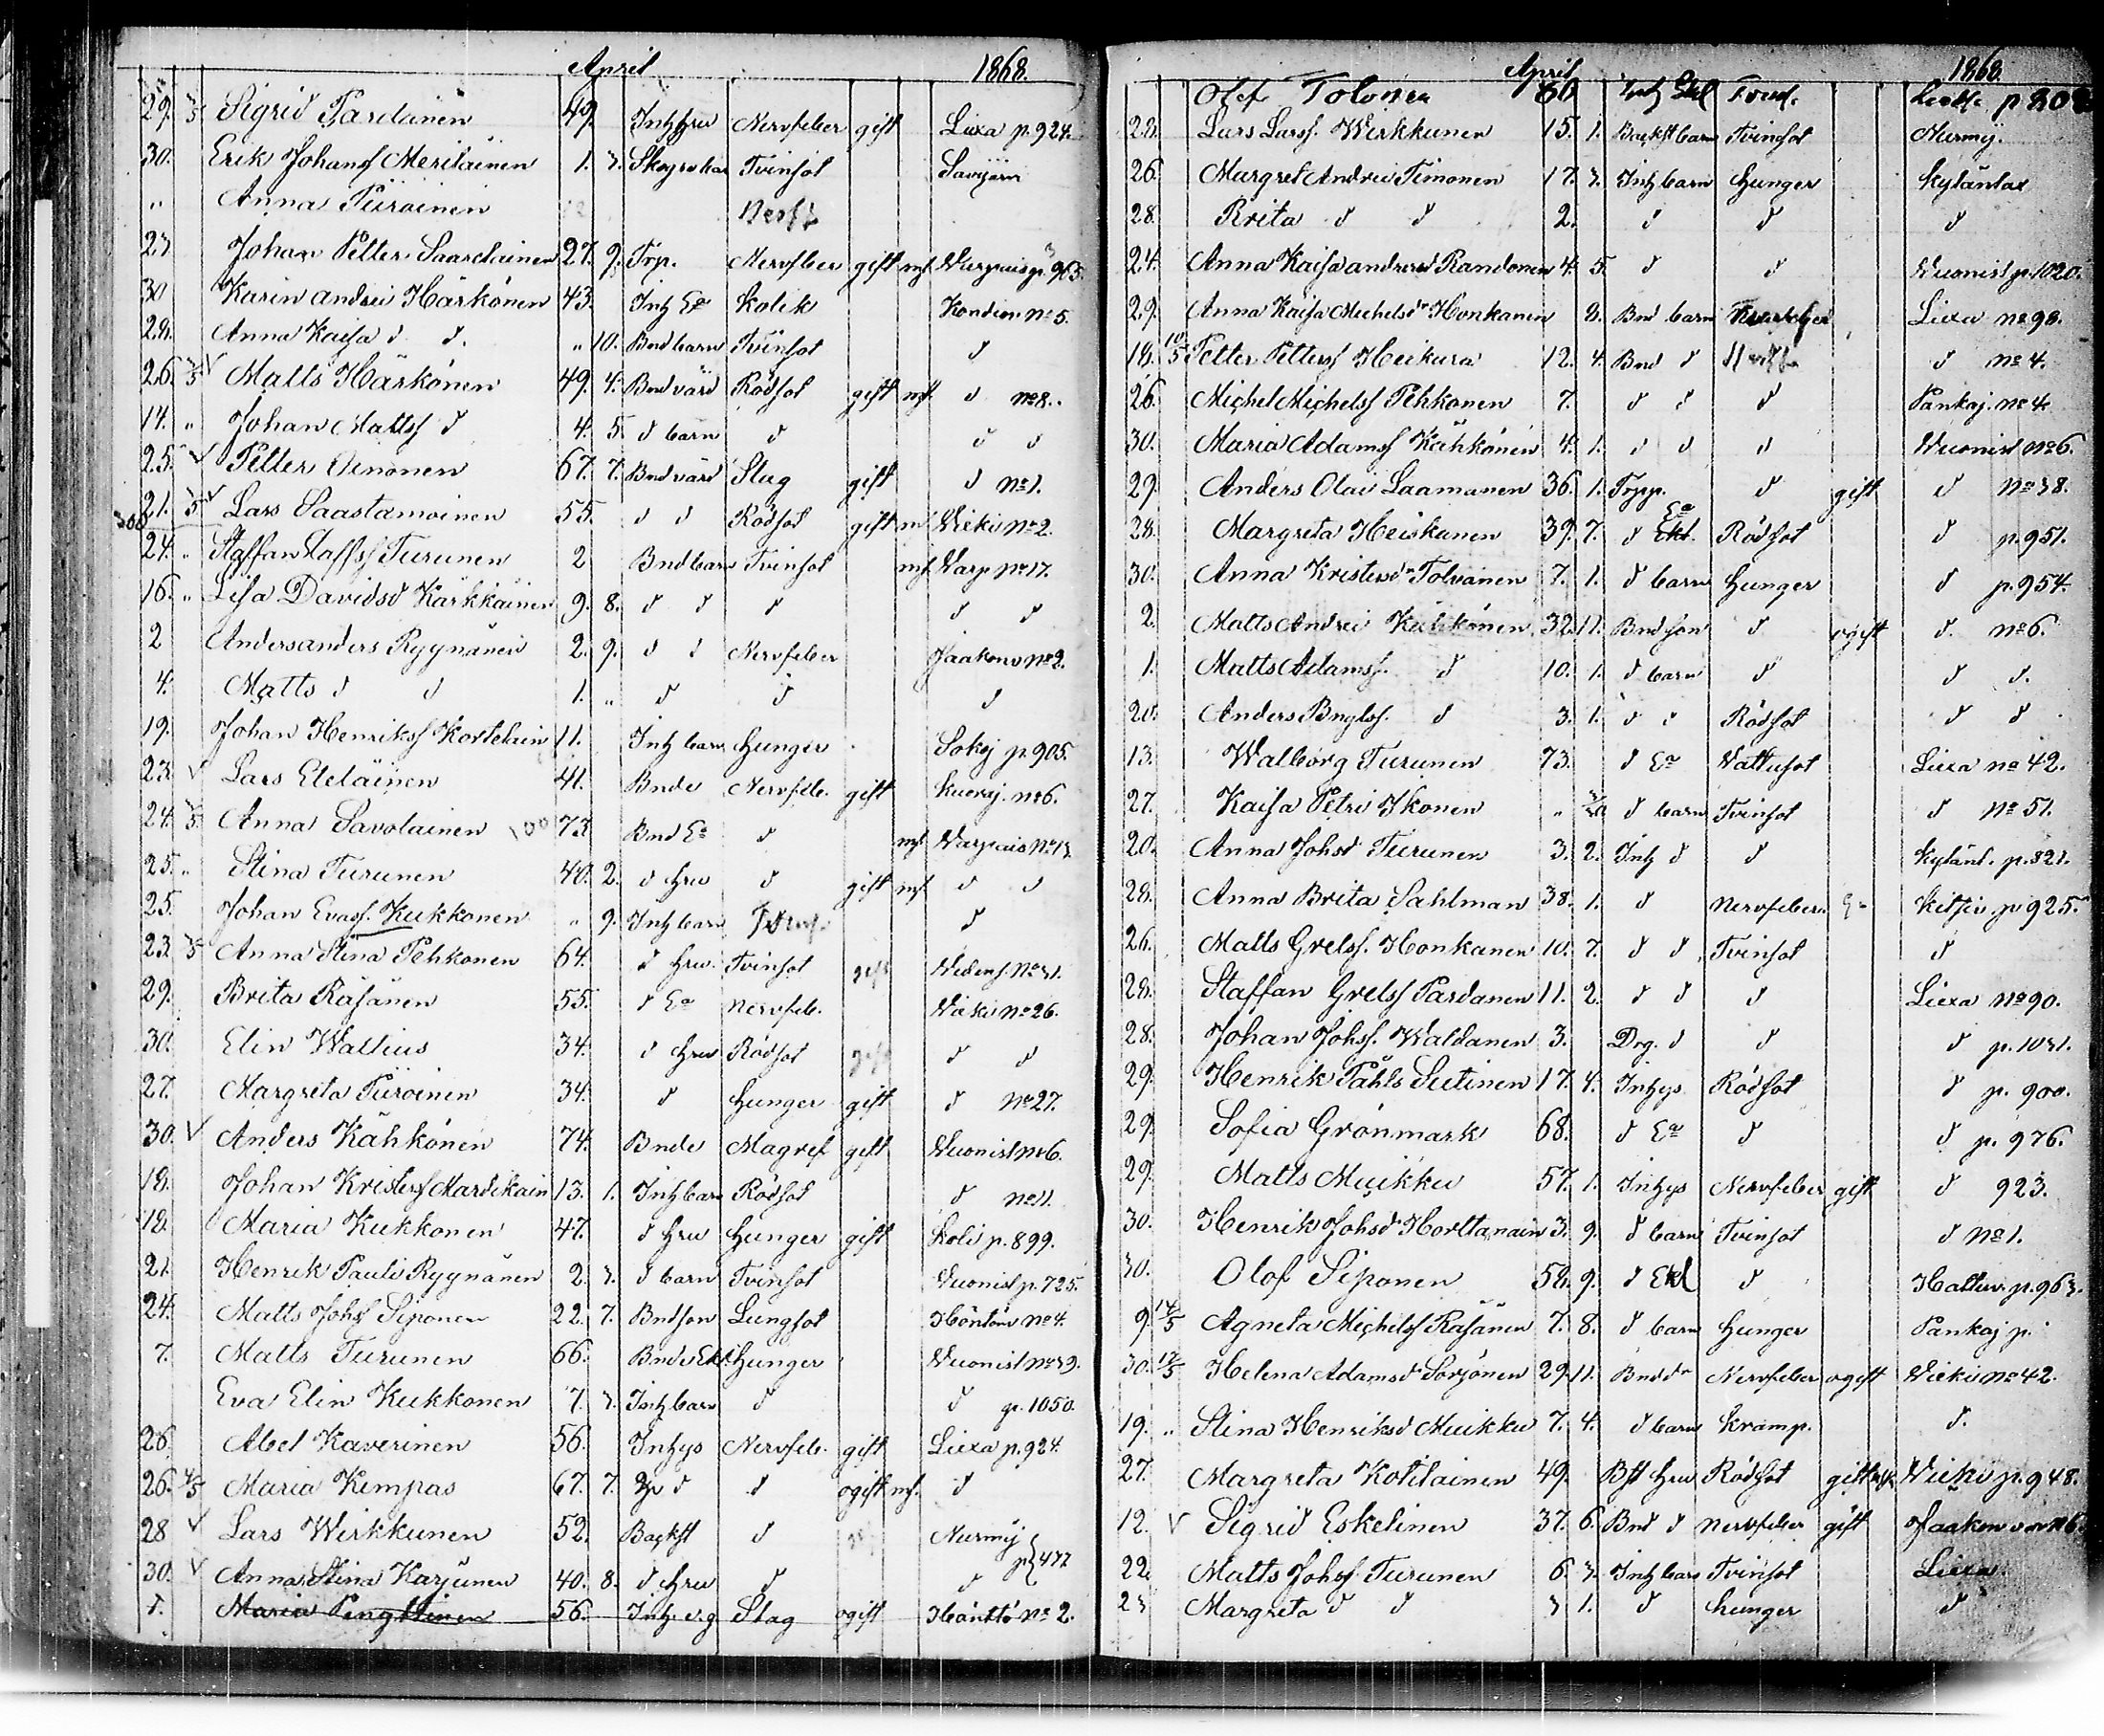 April 1868.
29. 3/5 Sigrid Pardanen 49. Inh hru Nervfeber gift Lixa p. 924.
30. Erik Johansf Meriläinen 1. 3. Tvinsot
" Anna Piiroinen
27 Johan Petter Saarelainen 27. 9. Trp. Nervfeber gift mf.
30 Karin Andrei Härkönen 43. Inh Ea Kolik Kondiov. No 5.
28. Anna Kaisa d d. " 10. Bnd barn Tvinsot d
26. 3/5 V Matts Härkönen 49. 4. Bnd värd Rödsot gift mf. d No 8.
14. " Johan Mattsf d 4. 5. d barn d d d
25. V Petter Oinonen 67. 7. Bnd värd Slag gift d No 1.
21. 3/5 V Lars Saastamoinen 55. d d Rödsot gift mf Wieki No 2.
24. " Staffan Staffsf Turunen 2 Bnd barn Tvinsot mf. Varp No 17.
16. " Lisa Davidsd Kärkkäinen 9. 8. d d d d d
2 Anders Anders Ryynänen 2. 9. d d Nervfeber Jaakonv No 2.
4. Matts d d 1. " d d d
19. Johan Henriksf Kortelain 11. Inh barn Hunger Sokoj p. 905.
23. V Lars Eteläinen 41. Bnde Nervfeb. gift Kuoraj. No 6.
24. 3/5 Anna Savolainen 73 Bnd Ea d mf Varpais No 13.
25. " Stina Turunen 40. 2. d hru d gift mf d d
25. Johan Evasf. Kukkonen " 9. Inh barn d
23 3/5 Anna Stina Pehkonen 64. d hru. Tvinsot gift No 31.
29. Brita Räsänen 55. d Ea Nervfeb. Wieki No 26.
30. Elin Wallius 34. d hru Rödsot gift d d
27. Margreta Piiroinen 34. d Hunger gift d No 27.
30. V Anders Kähkönen 74. Bnde Magref gift Wuonisl No 6.
18. Johan Kristersf Mardikain 13. 1. Inh barn Rödsot d No 11.
18. Maria Kukkonen 47. d hru Hunger gift Koli p. 899.
21. Henrik Pauli Ryynänen 2. 3. d barn Tvinsot Wuonisl p. 725.
24. Matts Johsf Siponen 22. 7. Bndson Lungsot Höntöv No 4.
7. Matts Turunen 66. Bnde Ekl. Hunger Wuonisl No 39.
Eva Elin Kukkonen 7. 3. Inh barn d d p. 1050.
26. Abel Kaverinen 56. Inhys Nervfeb. gift Liexa p. 924.
26. 4/5 Maria Kempas 67. 7. d d ogift mf. d
28 V Lars Wirkkunen 52. Backst d Nurmij
p 477
30. V Anna Stina Karjunen 40. 8. d hru d d
Maria Pengttinen 56. Inh Slag ogift Hänttö No 2.
April 1868.
Olof Tolonen 60 Inh Ekl
28. Lars Larsf. Wirkkunen 15. 1. Backst barn Tvinsot Nurmij.
26. Margret Andrei Timonen 17. 3. Inh barn Hunger Kylänlax
28. Brita d d 2. d d d
24. Anna Kaisa Andersd Randonen 4. 5. d d Wuonisl p. 1020.
29. Anna Kaisa Michelsdr Honkanen 8. Bnd barn Liexa No 98.
18. 10/5 Petter Pettersf Heikura 12. 4. Bnd d d No 4.
26. Michel Michelsf Pehkonen 7. d d d Pankaj. No 4
30. Maria Adamsf Kähkönen 4. 1. d d d Wuonisl No 6.
29. Anders Olai Laamanen 36. 1. Trpp. d gift d No 38.
28. Margreta Heiskanen 39. 7. d Ea Rödsot d p. 951.
30. Anna Kristersdr Tolvanen 7. 1. d barn Hunger d p. 954.
2. Matts Andrei Kähkönen 32. 11. Bnd son d ogift d. No 6.
1. Matts Adamsf. d 10. 1. d barn d d d.
20. Anders Bnglsf. d 3. 1. d d Rödsot d d
13. Walborg Turunen 73. d Ea Vattusot Liexa No 42.
27. Kaisa Petri Ikonen " d barn Tvinsot d No 51.
20. Anna Johsd Turunen 3. 2. Inh d d Kylänl. p. 821.
28. Anna Brita Sahlman 38. 1. d Nervfeber. Kitsiv. p 925.
26. Matts Gretsf. Honkanen 10. 7. d d Tvinsot d
28. Staffan Gretsf Pardanen 11. 2. d d d Liexa No 90.
28. Johan Johsf. Waldanen 3. Drg. d d d p. 1031.
29. Henrik Påhls Sutinen 17. 4. Inhys Rödsot d p. 900.
29. Sofia Grönmark 68. d Ea d d p. 976.
29. Matts Muikku 57. 1. Inhys Nervfeber gift d 923.
30. Henrik Johsd Horttanain 3. 9. d barn Tvinsot d No 1.
30. Olof Siponen 58. 9. d Ekl d Hattuv. p. 963.
9 14/5 Agneta Michelsf Räsänen 7. 8. d barn Hunger Pankaj p.
30. 17/5 Helena Adamsd Sorjonen 29. 11. Bnd dr Nervfeber ogift Wieki No 42.
19. " Stina Henriksd Muikku 7. 4. d barn Kramp. d.
27. Margreta Kotilainen 49. Bst hru Rödsot gift Wieki p. 948.
12. V Sigrid Eskelinen 37. 6. Bnd d Nervfeber gift Jaakonv No 6
22. Matts Johsf Turunen 6. 3. Inh barn Tvinsot Liexa
23 Margreta d d 3 1. d hunger d